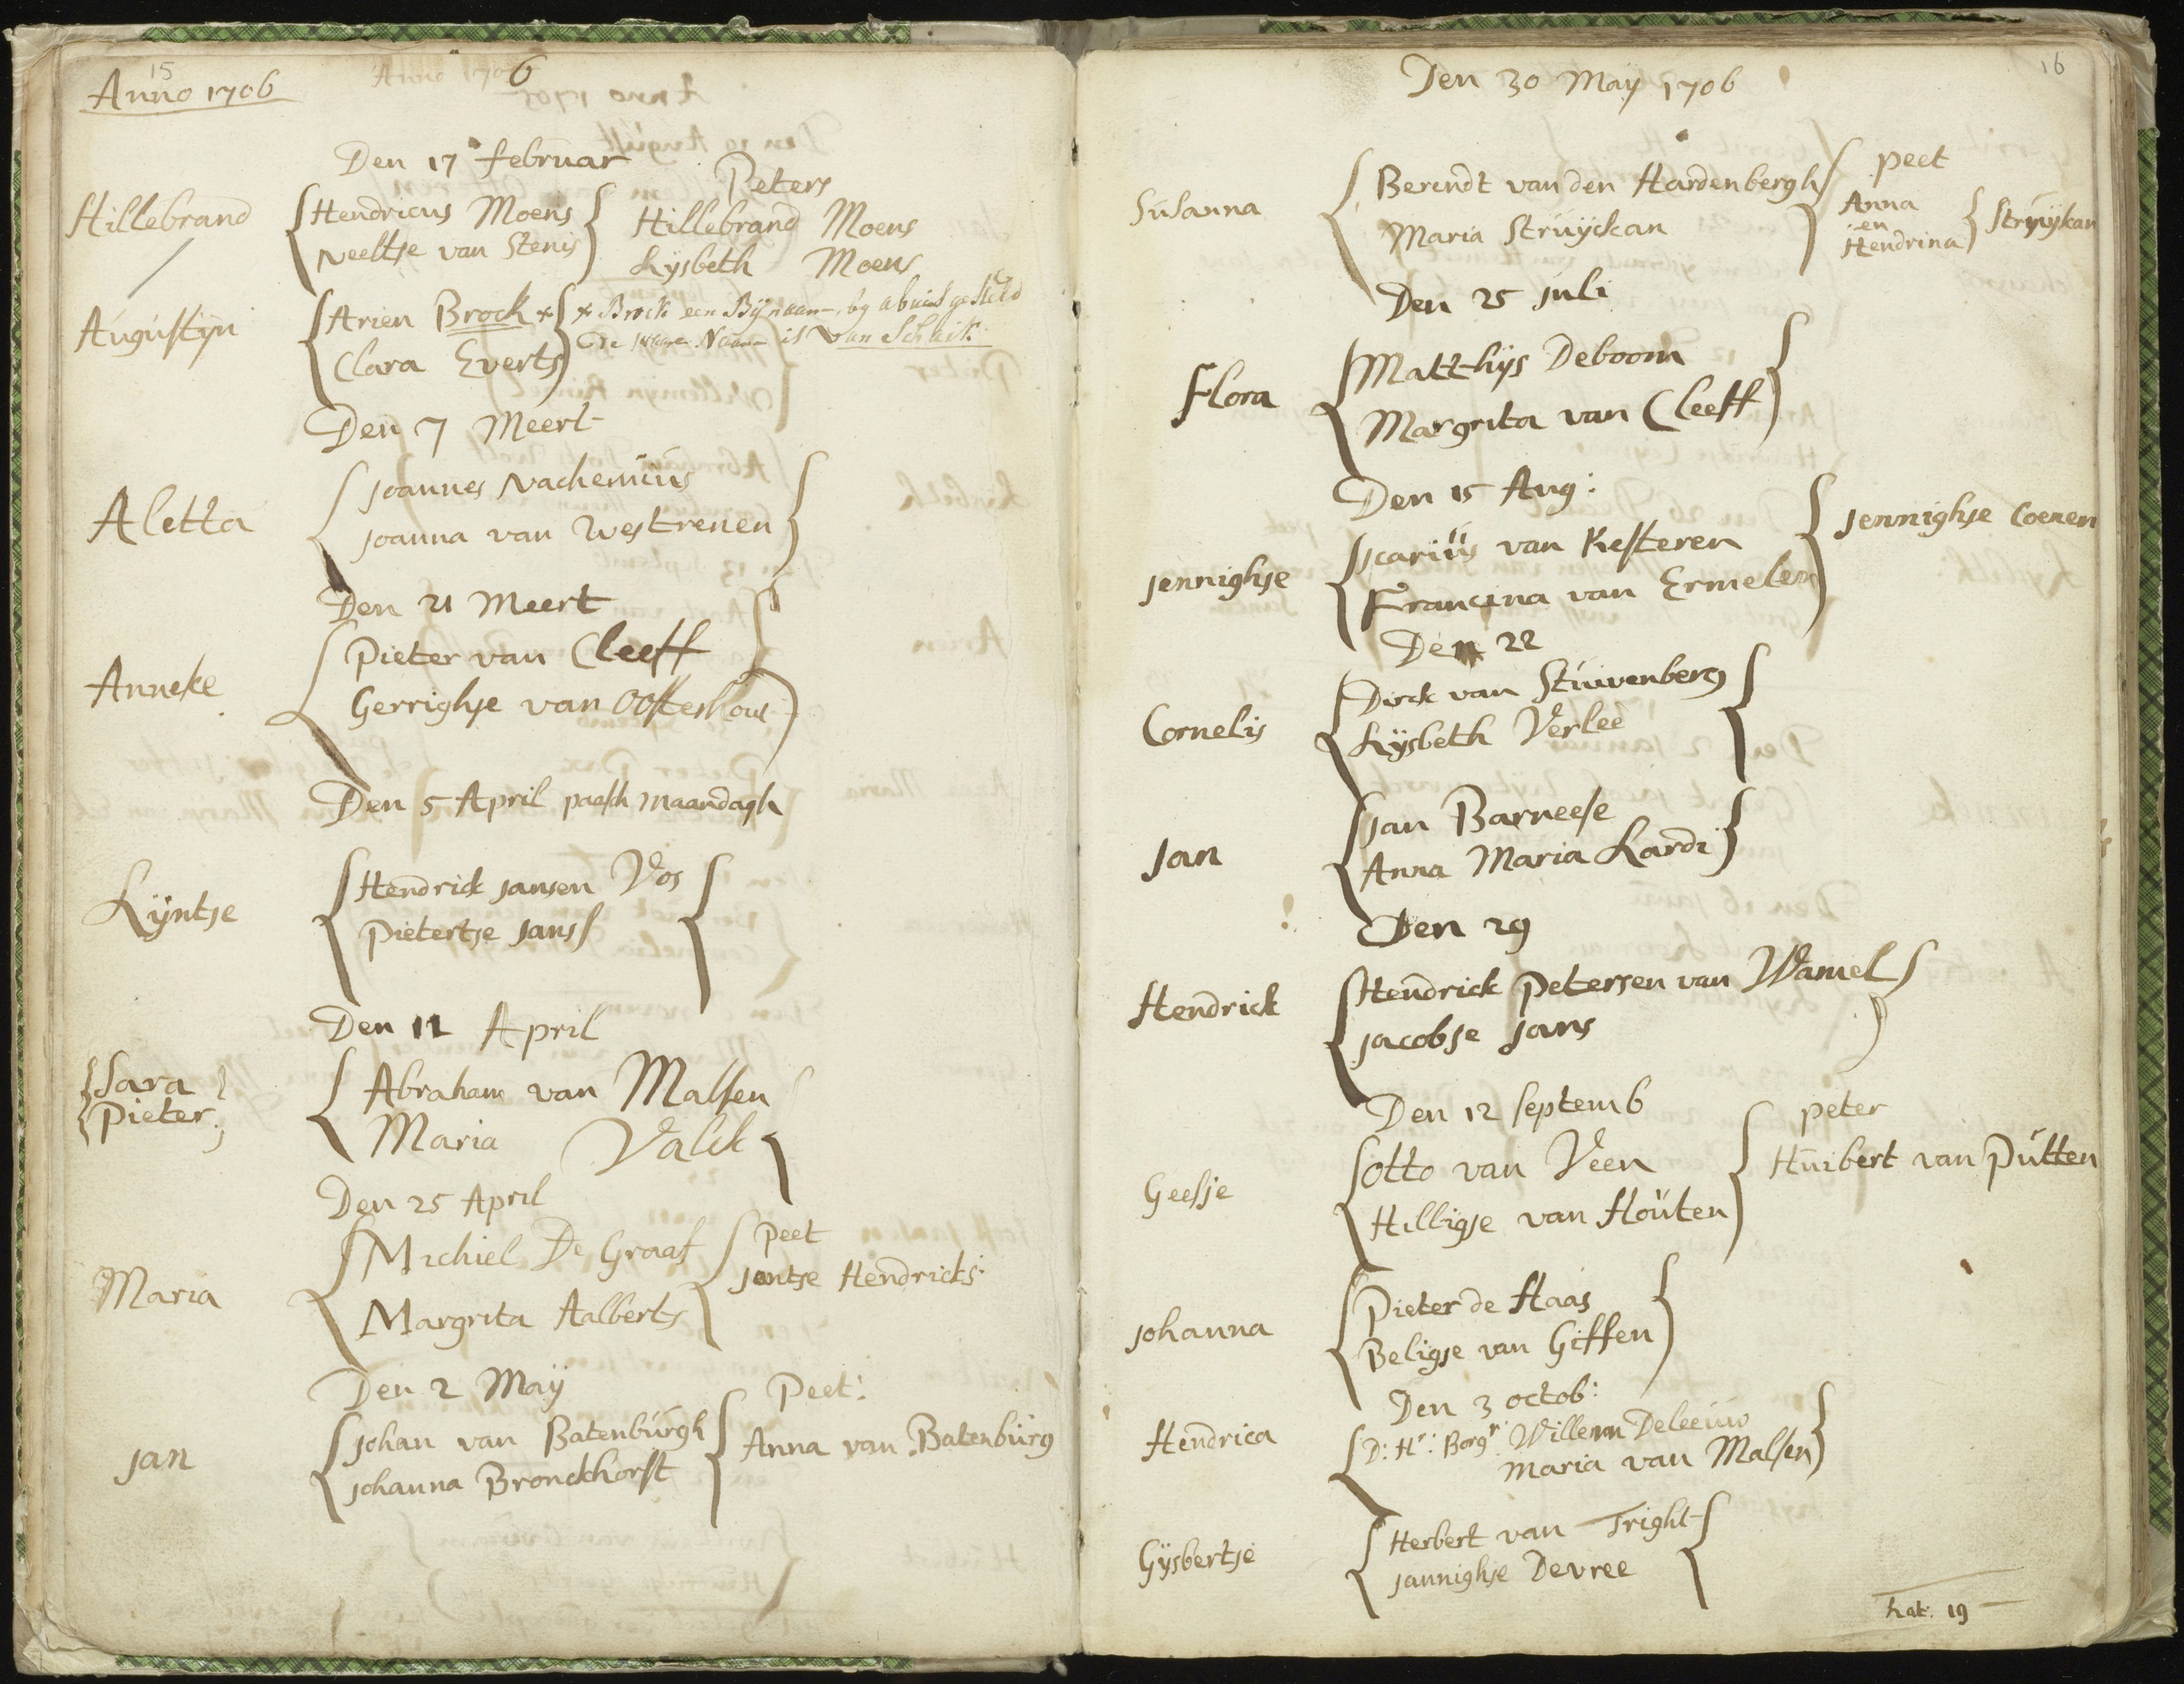 15
Anno 1706
Anno 1706
Den 17 februar
Peters
Hillebrand
Hendricus Moens
Hillebrand Moens
Neeltje van Stenis
Lÿsbeth Moens
Augustÿn
Arien Brock x
x Brock een Bÿnaam, by abuis gesteld
Clara Everts
De ware Naam is van Schaik.
Den 7 Meert
Aletta
Joannes Nachenius
Joanna van Westrenen
Den 21 Meert
Anneke
Pieter van Cleeff
Gerrighje van Oosterhout
Den 5 April paash maandagh
Lÿntje
Hendrick Jansen Vos
Pietertje Janss
Den 11 April
Sara
Pieter
Abraham van Malsen
Maria Valck
Den 25 April
Maria
Michiel De Graaf
Peet
Jantje Hendricks:
Margrita Aalberts
Den 2 Maÿ
Peet:
Jan
Johan van Batenbúrgh
Anna van Batenbúrg
Johanna Bronckhorst
16
Den 30 Maÿ 1706
peet
Súsanna
Berendt van den Hardenbergh
Anna
en
Hendrina
Strúÿkan
Maria Strúÿckan
Den 25 Juli
Flora
Matthÿs Deboom
Margrita van Cleeff
Den 15 Aug:
Jennighje
Icariüs van Kesteren
Jennighje Coenen
Francina van Ermelen
Den 22
Cornelis
Dirck van Stúivenberg
Lÿsbeth Verlee
Jan
Jan Barneese
Anna Maria Lardi
Den 29
Hendrick
Hendrick Petersen van Wamel
Jacobje Jans
Den 12 Septemb
peter
Geesje
Otto van Veen
Húibert van Pútten
Hilligje van Hoúten
Johanna
Pieter de Haas
Beligje van Giffen
Den 3 octob:
Hendrica
D: Hr: Borgr Willem Deleeúw
Maria van Malsen
Gÿsbertje
Herbert van Tright
Jannighje Devree
Lat: 19